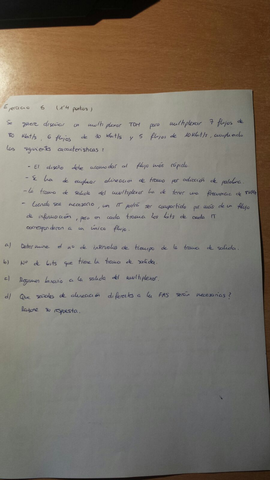 Ejercicio 6 (1.5 puntos)
Se quiere diseñar un multiplexor TDM para multiplexar 7 flujos de
kbit/s, 6 flujos de 20 kbit/s y 5 flujos de 10 kbit/s, cumpliendo
las siguientes características:
- El diseño debe acomodar al flujo más rápido
- Se ha de emplear alineación de trama por adición de palabra
- La trama de salida del multiplexor ha de tener una frecuencia de
- Cuando sea necesario, un IT podrá ser compartido por más de un flujo
de información, pero en cada trama los bits de cada IT
corresponderán a un único flujo.
a) Determine el nº de intervalos de tiempo de la trama de salida.
b) Nº de bits que tiene la trama de salida.
c) Régimen binario a la salida del multiplexor.
d) Que señales de alineación diferentes a la PAT serán necesarias?
Razone su respuesta.